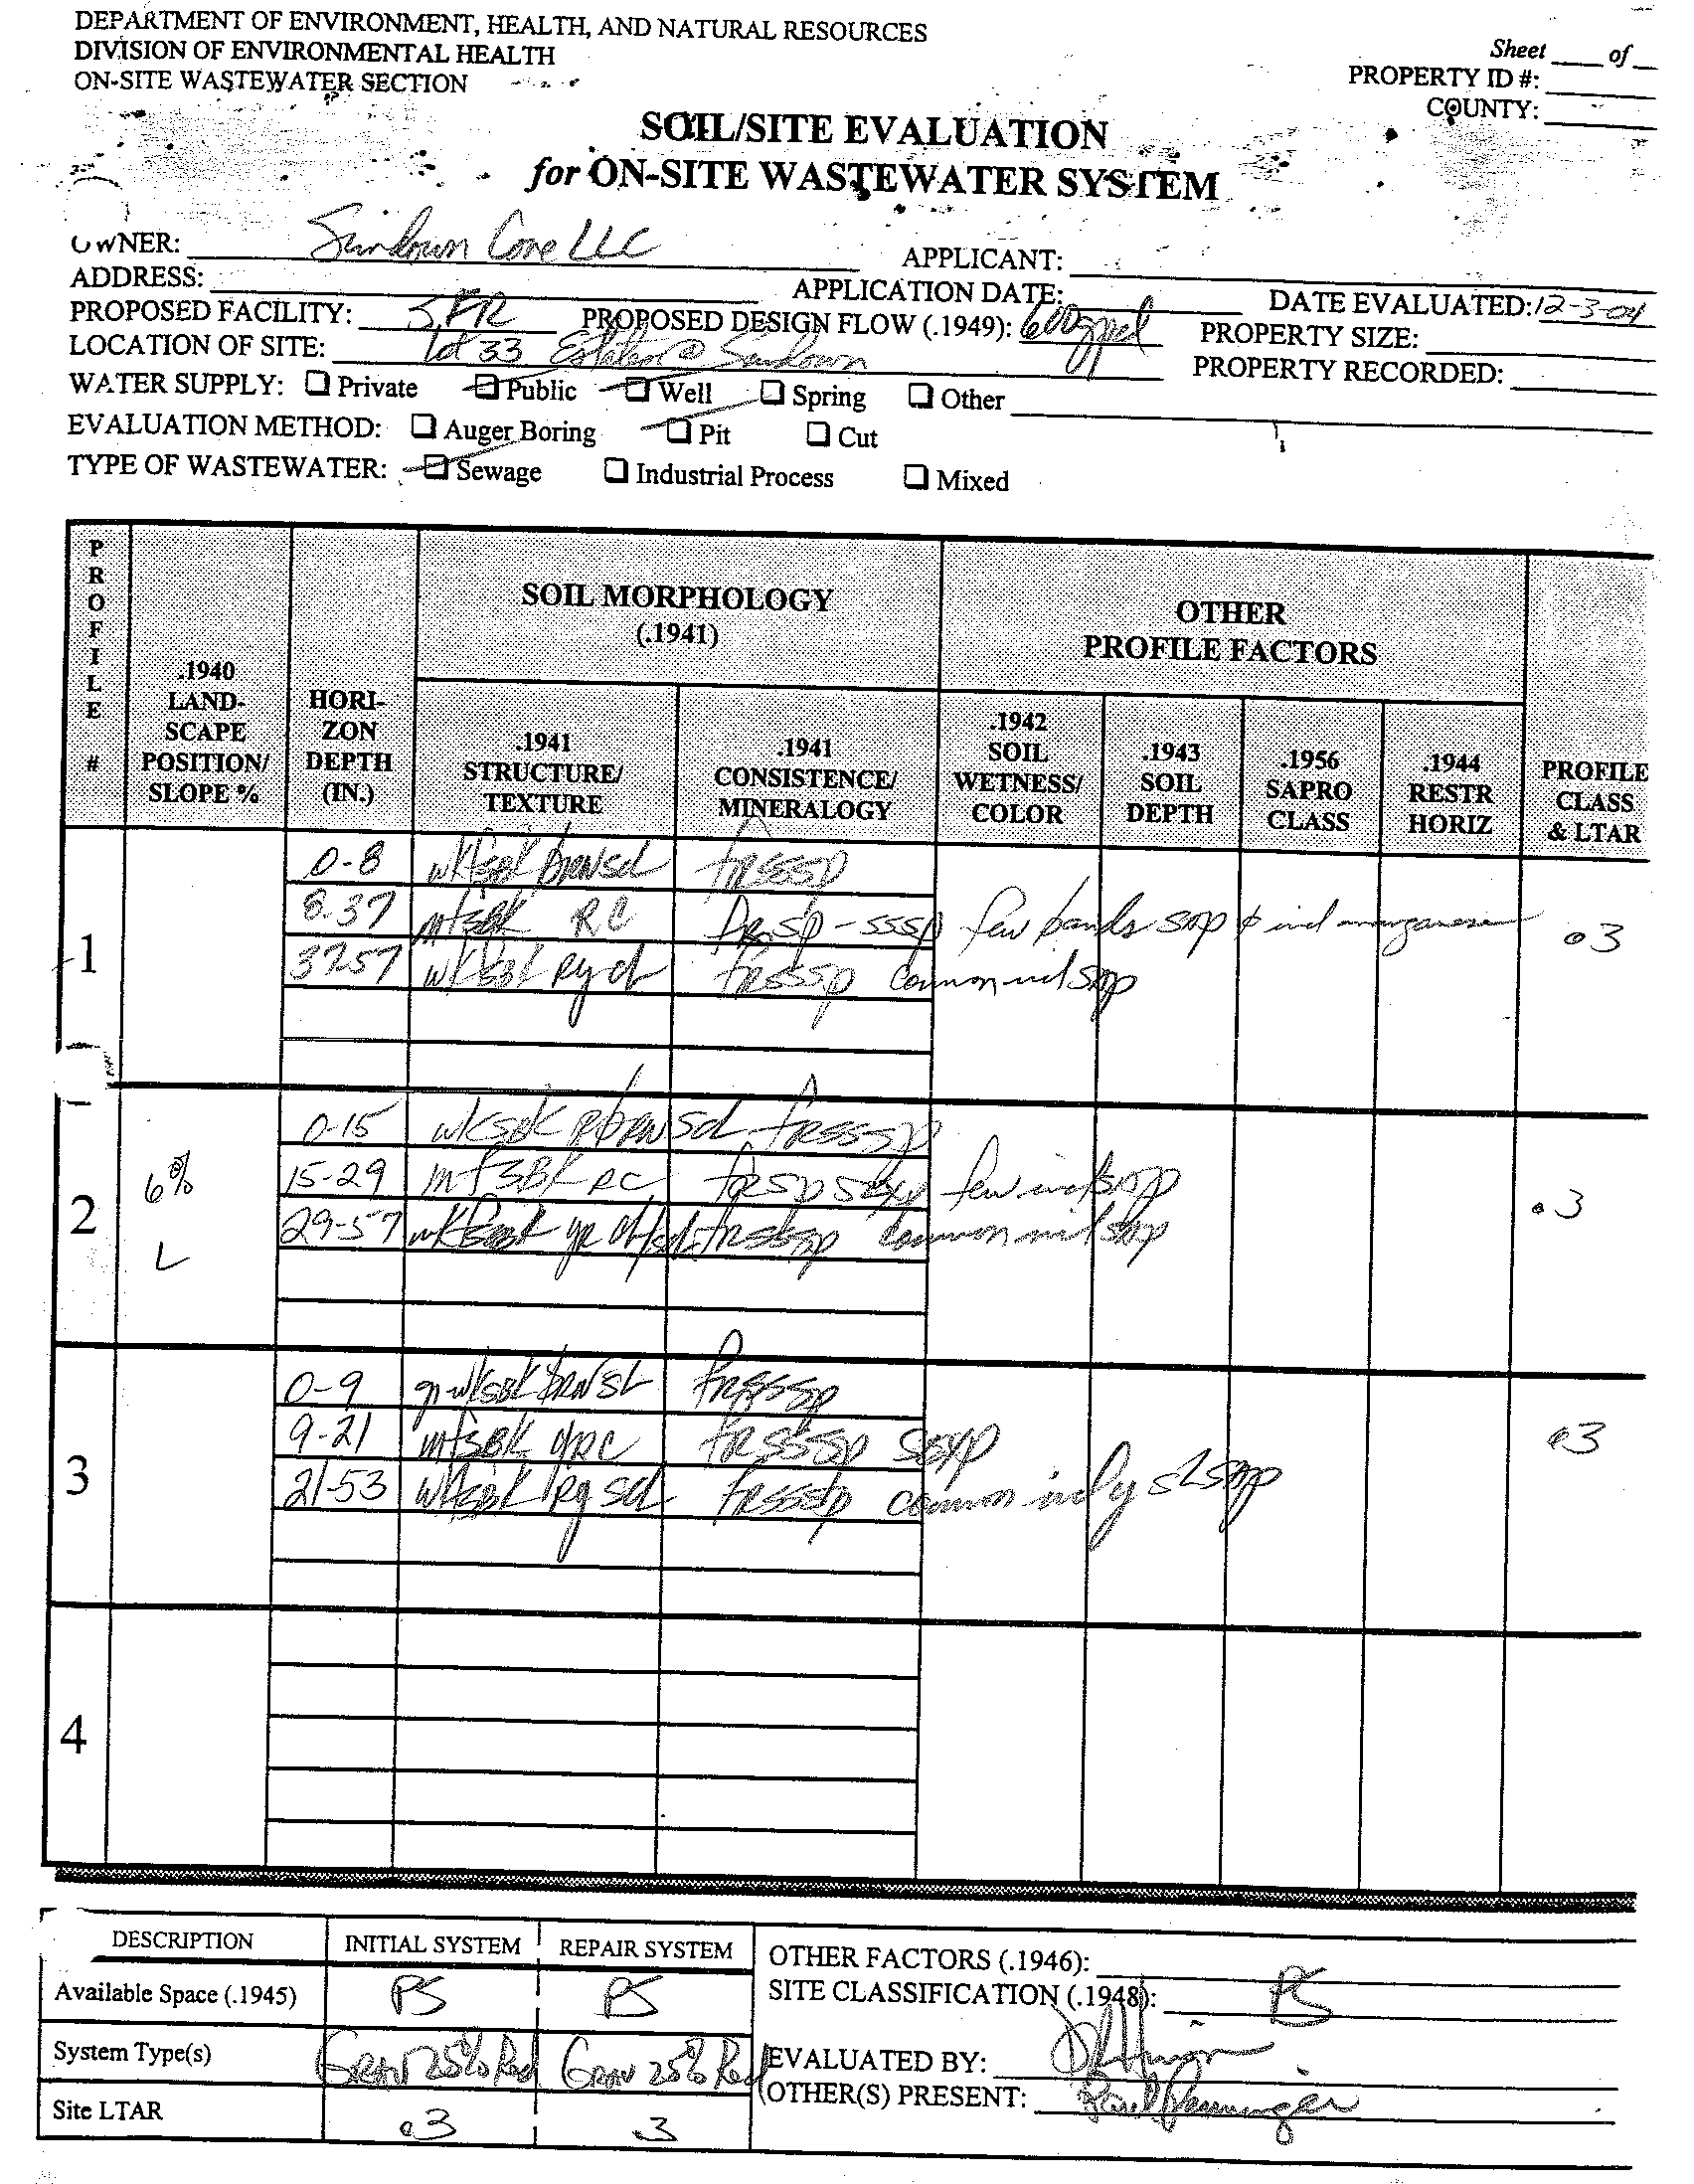 DEPARTMENT OF ENVIRONMENT, HEALTH, AND NATURAL RESOURCES
DIVISION OF ENVIRONMENTAL HEALTH
ON-SITE WASTEWATER SECTION
Sheet ____ of __
PROPERTY ID #:
COUNTY:
SOIL/SITE EVALUATION
for ON-SITE WASTEWATER SYSTEM
OWNER: Sundown Cove LLC APPLICANT:
ADDRESS: APPLICATION DATE: DATE EVALUATED: 12-3-04
PROPOSED FACILITY: SFR PROPOSED DESIGN FLOW (.1949): 600gpd PROPERTY SIZE:
LOCATION OF SITE: Lot 33 Estates @ Sundown PROPERTY RECORDED:
WATER SUPPLY: Private Public Well Spring Other
EVALUATION METHOD: Auger Boring Pit Cut
TYPE OF WASTEWATER: Sewage Industrial Process Mixed
PROFILE #
.1940 LAND-SCAPE POSITION/ SLOPE %
HORI-ZON DEPTH (IN.)
SOIL MORPHOLOGY (.1941)
.1941 STRUCTURE/ TEXTURE
.1941 CONSISTENCE/ MINERALOGY
OTHER PROFILE FACTORS
.1942 SOIL WETNESS/ COLOR
.1943 SOIL DEPTH
.1956 SAPRO CLASS
.1944 RESTR HORIZ
PROFILE CLASS & LTAR
1
0-8 wkfsbk brn scl frsssp
8-37 mfsbk RC frsp-sssp few bands sap & ind manganese .3
37-57 wkfsbk ry cl frsssp common sap
2 6% L
0-15 wksbk rbrn scl frsssp
15-29 mfsbk RC frsp few sap .3
29-57 wkfsbk yr cl/scl frsssp common sap
3
0-9 wksbk brn sl frsssp
9-21 mfsbk yrc frsssp .3
21-53 wkfsbk ry scl frsssp common sap
4
DESCRIPTION INITIAL SYSTEM REPAIR SYSTEM
Available Space (.1945) PS PS
System Type(s) Grav 25% Red Grav 25% Red
Site LTAR .3 .3
OTHER FACTORS (.1946):
SITE CLASSIFICATION (.1948): PS
EVALUATED BY:
OTHER(S) PRESENT: